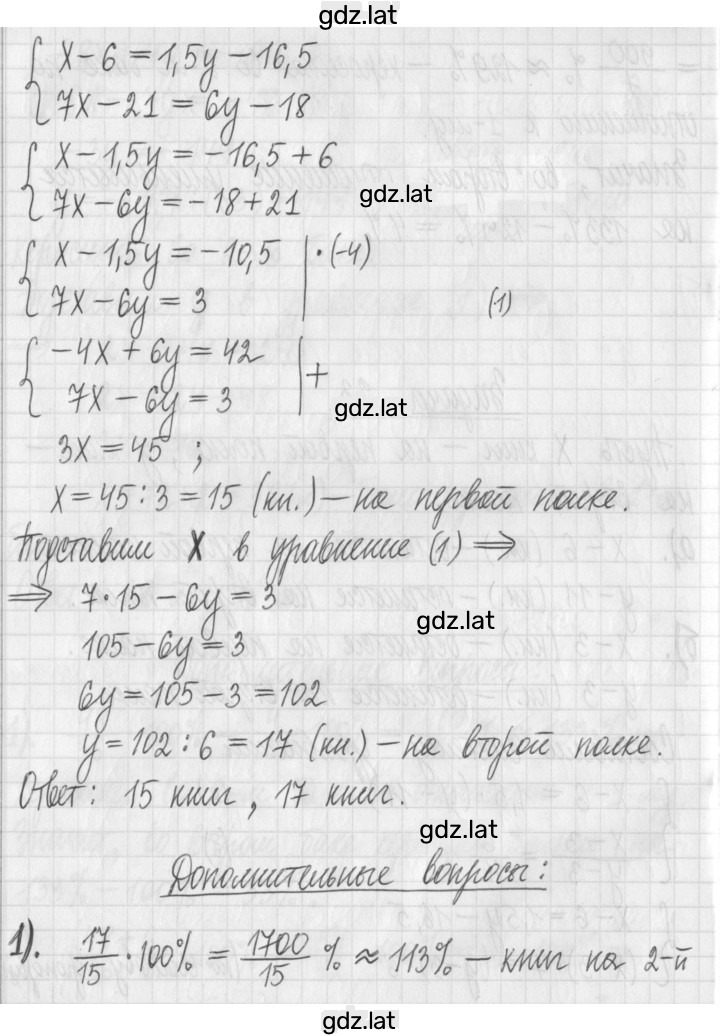 gdz.lat
x - 6 = 1,5y - 16,5
7x - 21 = 6y - 18
x - 1,5y = -16,5 + 6
gdz.lat
7x - 6y = -18 + 21
x - 1,5y = -10,5 | · (-4)
7x - 6y = 3 (1)
-4x + 6y = 42 | +
7x - 6y = 3
gdz.lat
3x = 45 ;
x = 45 : 3 = 15 (кн.) — на первой полке.
Подставим x в уравнение (1) ⇒
⇒ 7 · 15 - 6y = 3
gdz.lat
105 - 6y = 3
6y = 105 - 3 = 102
y = 102 : 6 = 17 (кн.) — на второй полке.
Ответ: 15 книг, 17 книг.
gdz.lat
Дополнительные вопросы:
1). 17/15 · 100% = 1700/15 % ≈ 113% — книг на 2-й
gdz.lat